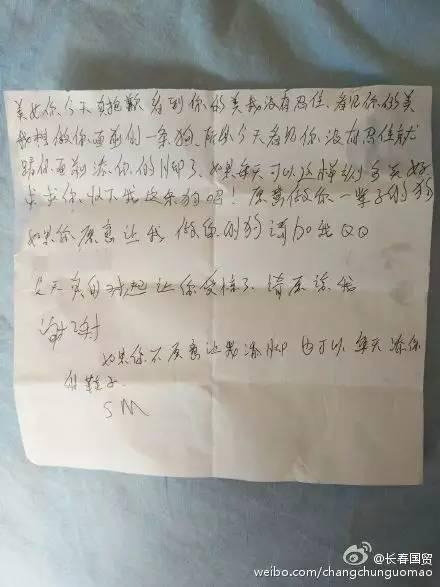 美女你今天真抱歉看到你的美我没有忍住.看见你的美
我想做你面前的一条狗.所以今天看见你没有忍住就
跪你面前添你的脚了.如果每天可以这样该多美好
求求你.收下我这条狗吧！愿意做你一辈子的狗
如果你愿意让我做你的狗请加我QQ
今天真的对起让你受惊了.请原谅我
谢谢
如果你不愿意让我添脚也可以每天添你
的鞋子.
SM
@长春国贸
weibo.com/changchunguomao